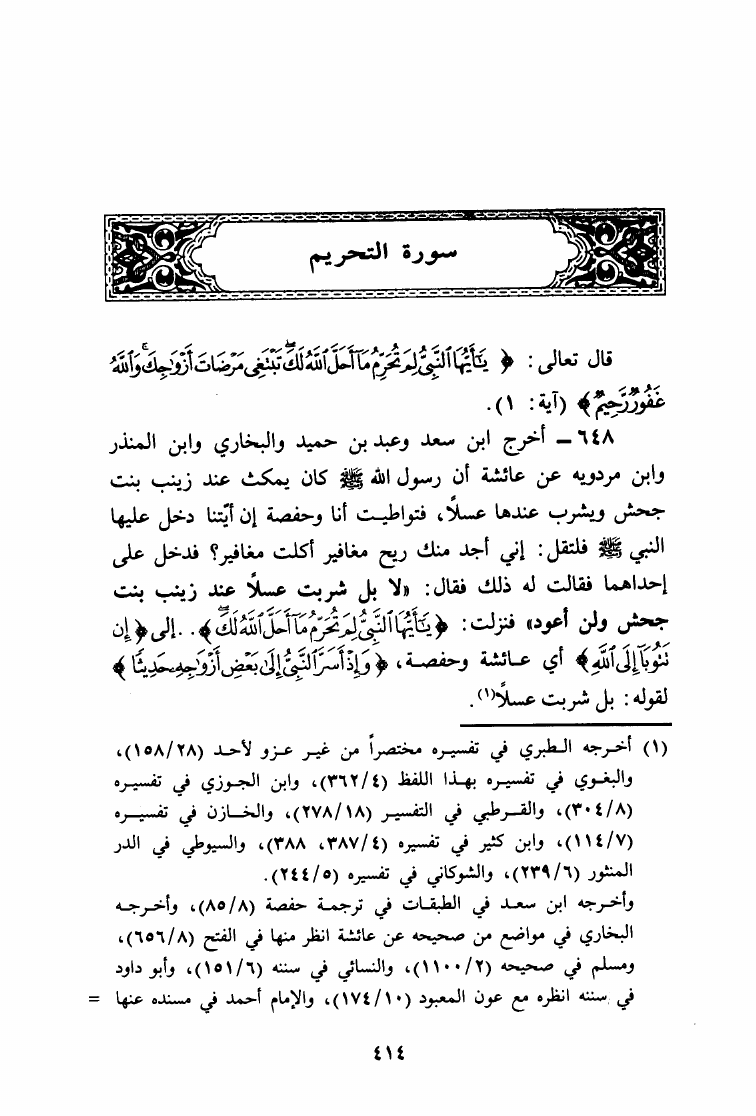 سورة التحريم
قال تعالى: ﴿ يَٰٓأَيُّهَا ٱلنَّبِيُّ لِمَ تُحَرِّمُ مَآ أَحَلَّ ٱللَّهُ لَكَۖ تَبْتَغِي مَرْضَاتَ أَزْوَٰجِكَۚ وَٱللَّهُ
غَفُورٌ رَّحِيمٌ ﴾ (آية: ١).
٦٤٨ ـ أخرج ابن سعد وعبد بن حميد والبخاري وابن المنذر
وابن مردويه عن عائشة أن رسول الله ﷺ كان يمكث عند زينب بنت
جحش ويشرب عندها عسلاً، فتواطيت أنا وحفصة إن أيّتنا دخل عليها
النبي ﷺ فلتقل: إني أجد منك ريح مغافير أكلت مغافير؟ فدخل على
إحداهما فقالت له ذلك فقال: «لا بل شربت عسلاً عند زينب بنت
جحش ولن أعود» فنزلت: ﴿ يَٰٓأَيُّهَا ٱلنَّبِيُّ لِمَ تُحَرِّمُ مَآ أَحَلَّ ٱللَّهُ لَكَۖ ﴾. . إلى ﴿ إِن
تَتُوبَآ إِلَى ٱللَّهِ ﴾ أي عائشة وحفصة، ﴿ وَإِذْ أَسَرَّ ٱلنَّبِيُّ إِلَىٰ بَعْضِ أَزْوَٰجِهِۦ حَدِيثًا ﴾
لقوله: بل شربت عسلاً(١).
(١) أخرجه الطبري في تفسيره مختصراً من غير عزو لأحد (١٥٨/٢٨)،
والبغوي في تفسيره بهذا اللفظ (٣٦٢/٤)، وابن الجوزي في تفسيره
(٣٠٤/٨)، والقرطبي في التفسير (٢٧٨/١٨)، والخازن في تفسيره
(١١٤/٧)، وابن كثير في تفسيره (٣٨٧/٤، ٣٨٨)، والسيوطي في الدر
المنثور (٢٣٩/٦)، والشوكاني في تفسيره (٢٤٤/٥).
وأخرجه ابن سعد في الطبقات في ترجمة حفصة (٨٥/٨)، وأخرجه
البخاري في مواضع من صحيحه عن عائشة انظر منها في الفتح (٦٥٦/٨)،
ومسلم في صحيحه (١١٠٠/٢)، والنسائي في سننه (١٥١/٦)، وأبو داود
في سننه انظره مع عون المعبود (١٧٤/١٠)، والإمام أحمد في مسنده عنها =
٤١٤